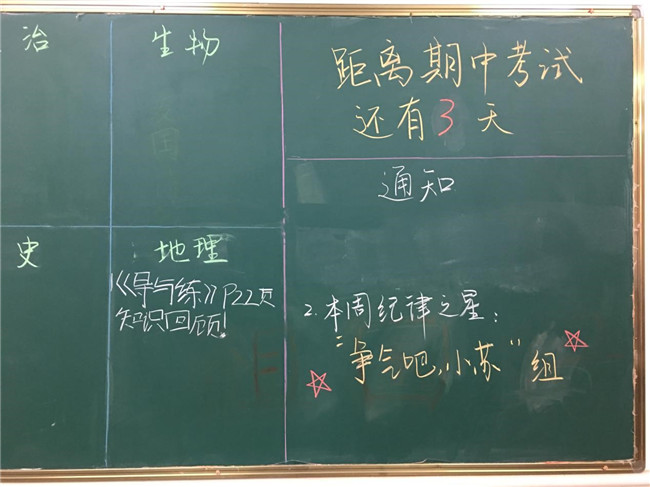 治
生物
距离期中考试
还有3天
通知
史
地理
《导与练》P22页
知识回顾!
2.本周纪律之星:
"争气吧,小苏"组